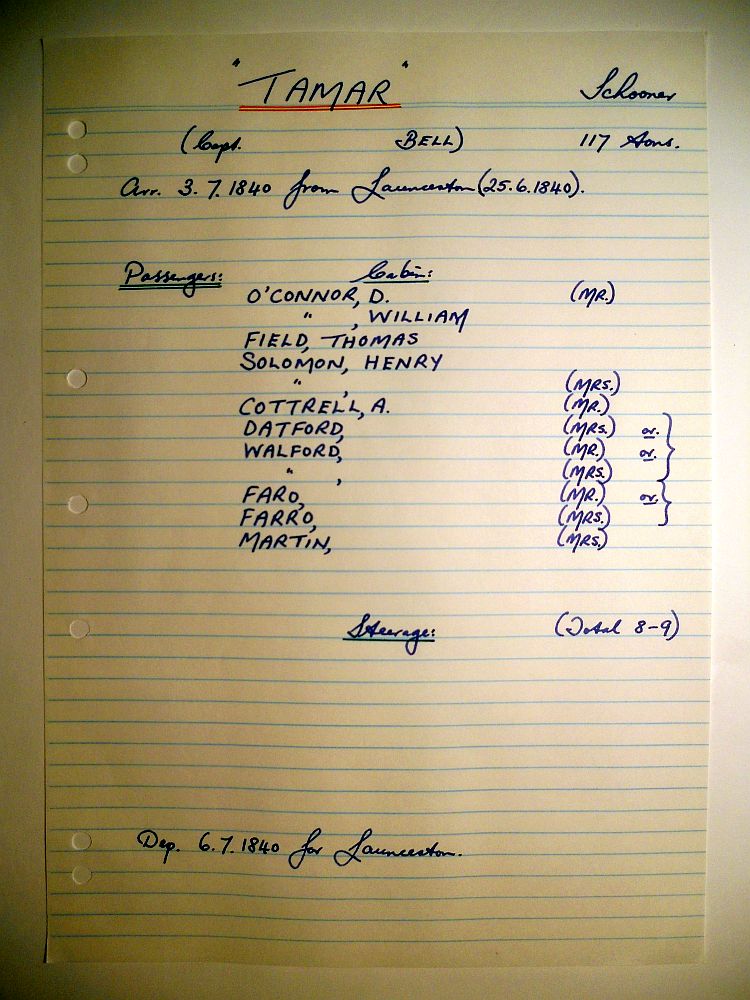 "TAMAR" Schooner
(Capt. BELL) 117 tons.
Arr. 3.7.1840 from Launceston (25.6.1840).
Passengers: Cabin:
O'CONNOR, D. (MR.)
" , WILLIAM
FIELD, THOMAS
SOLOMON, HENRY
" , (MRS.)
COTTRELL, A. (MR.)
DATFORD, (MRS.) or.
WALFORD, (MR.) or.
" , (MRS.)
FARO, (MR.) or.
FARRO, (MRS.)
MARTIN, (MRS.)
Steerage: (Total 8-9)
Dep. 6.7.1840 for Launceston.